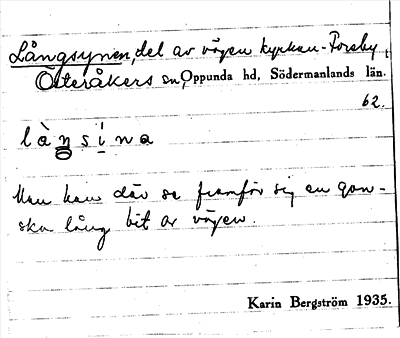 Långsynen, del av vägen kyrkan - Forsby,
Österåkers sn, Oppunda hd, Södermanlands län.
62.
làŋsi̇na
Man kan där se framför sig en gan-
ska lång bit av vägen.
Karin Bergström 1935.